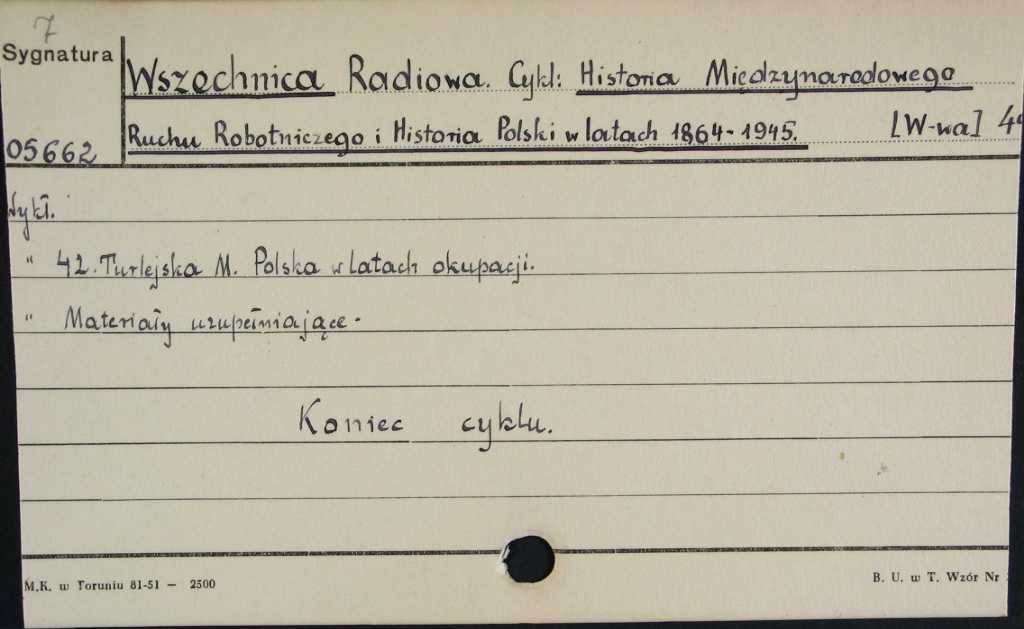 7
Sygnatura
Wszechnica Radiowa. Cykl: Historia Międzynarodowego
Ruchu Robotniczego i Historia Polski w latach 1864-1945. [W-wa]
05662
Wykł.
" 42. Turlejska M. Polska w latach okupacji.
" Materiały uzupełniające.
Koniec cyklu.
M.K. w Toruniu 81-51 — 2500
B. U. w T. Wzór Nr